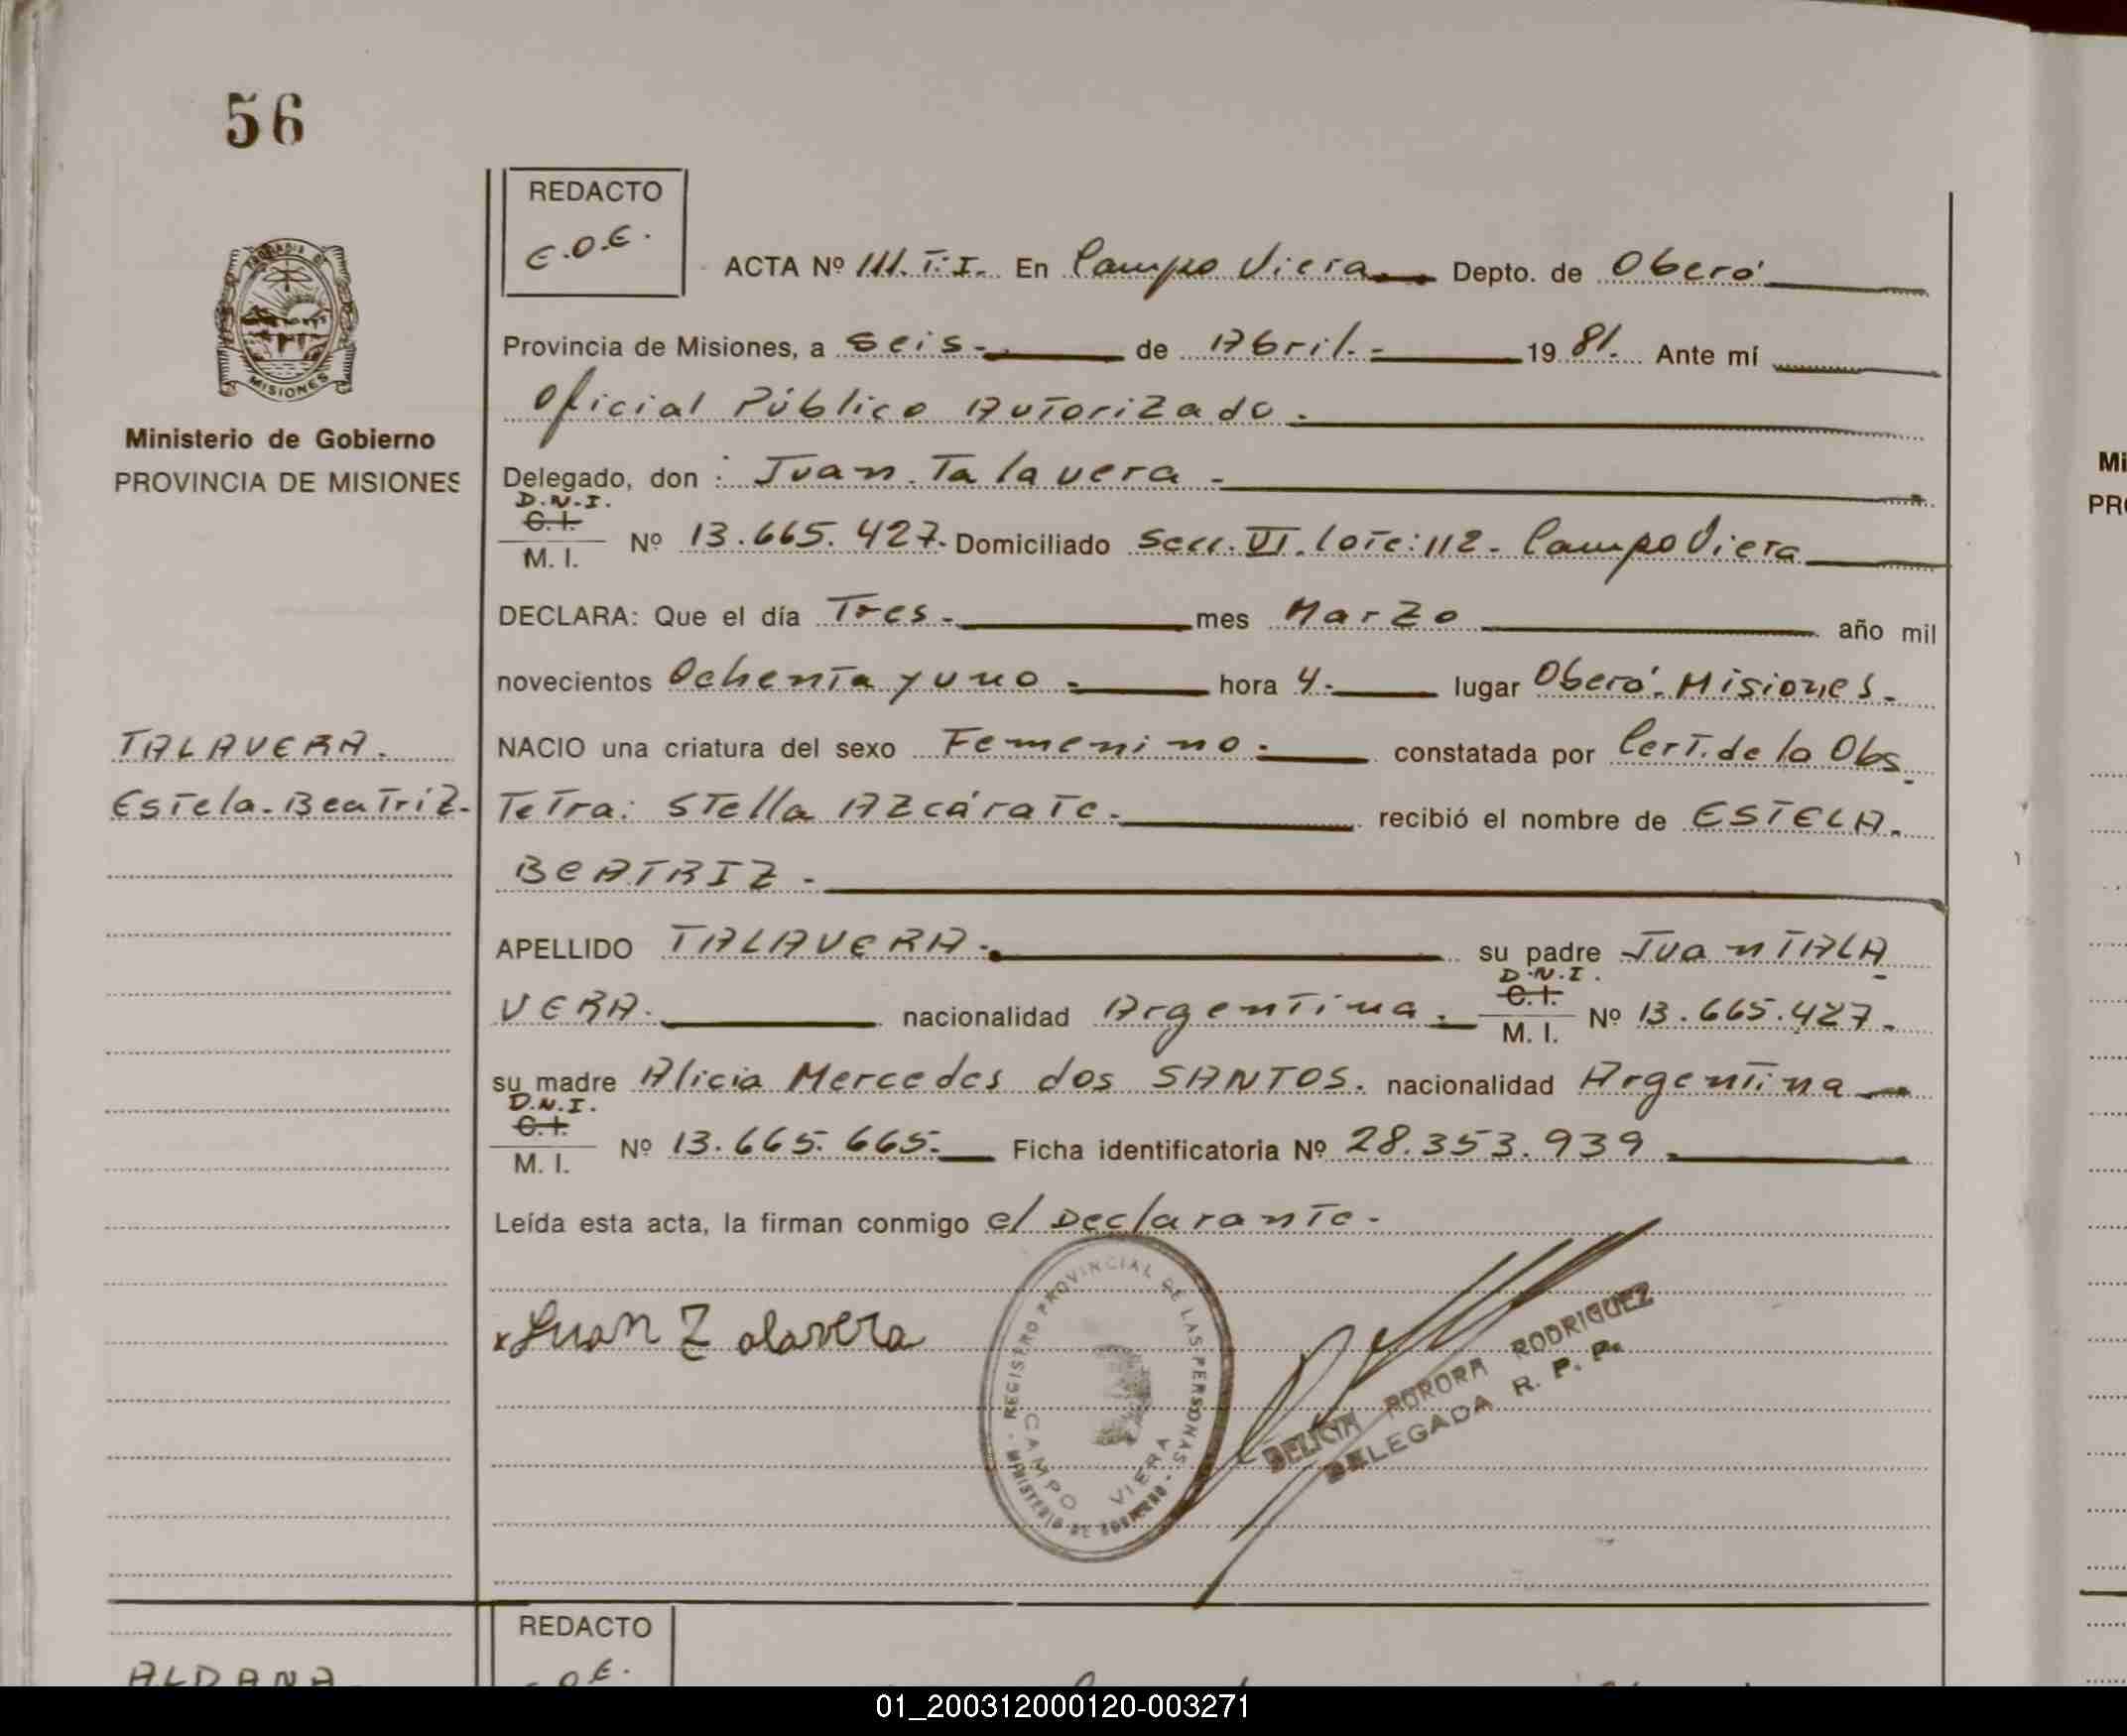 56
REDACTO
E.O.E.
ACTA Nº 111. T: I. En Campo Viera Depto. de Oberá
Provincia de Misiones, a seis.- de Abril.- 1981. Ante mí
Oficial Público Autorizado.
Ministerio de Gobierno
PROVINCIA DE MISIONES
MISIONES
Delegado, don : Juan Talavera -
D.N.I.
C.I.
M. I. Nº 13.665.427. Domiciliado Secc. VI. lote: 112- Campo Viera
DECLARA: Que el día Tres.- mes Marzo año mil
novecientos Ochenta y uno - hora 4.- lugar Oberá.- Misiones.
TALAVERA.
Estela-Beatriz-
NACIO una criatura del sexo Femenino.- constatada por Cert. de la Obs
Tetra: Stella Azcárate.- recibió el nombre de ESTELA.
BEATRIZ -
APELLIDO TALAVERA.- su padre Juan TALA
VERA.- nacionalidad Argentina.- D.N.I.
C.I.
M. I. Nº 13.665.427.
su madre Alicia Mercedes dos SANTOS. nacionalidad Argentina
D.N.I.
C.I.
M. I. Nº 13.665.665.- Ficha identificatoria Nº 28.353.939.
Leída esta acta, la firman conmigo el Declarante.-
x Juan Talavera
REGISTRO PROVINCIAL DE LAS PERSONAS
MINISTERIO DE GOBIERNO
CAMPO VIERA
DELICIA AURORA RODRIGUEZ
DELEGADA R. P. P.
REDACTO
ALDANA
01_200312000120-003271